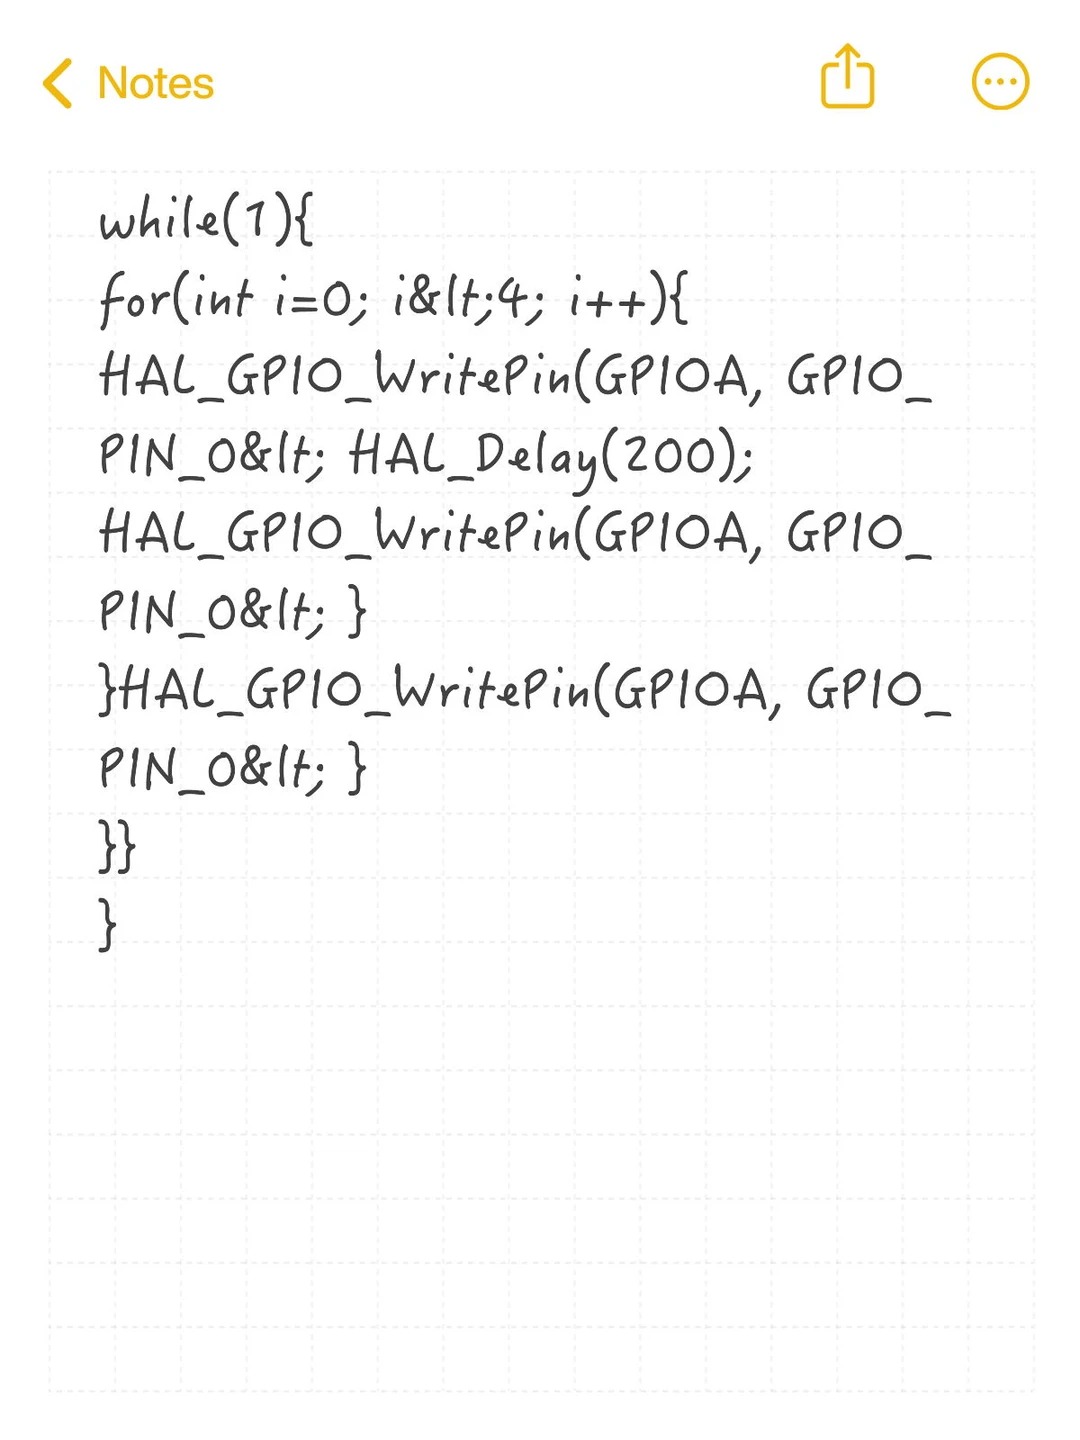 Notes
while(1){
for(int i=0; i&lt;4; i++){
HAL_GPIO_WritePin(GPIOA, GPIO_
PIN_0&lt; HAL_Delay(200);
HAL_GPIO_WritePin(GPIOA, GPIO_
PIN_0&lt; }
}HAL_GPIO_WritePin(GPIOA, GPIO_
PIN_0&lt; }
}}
}